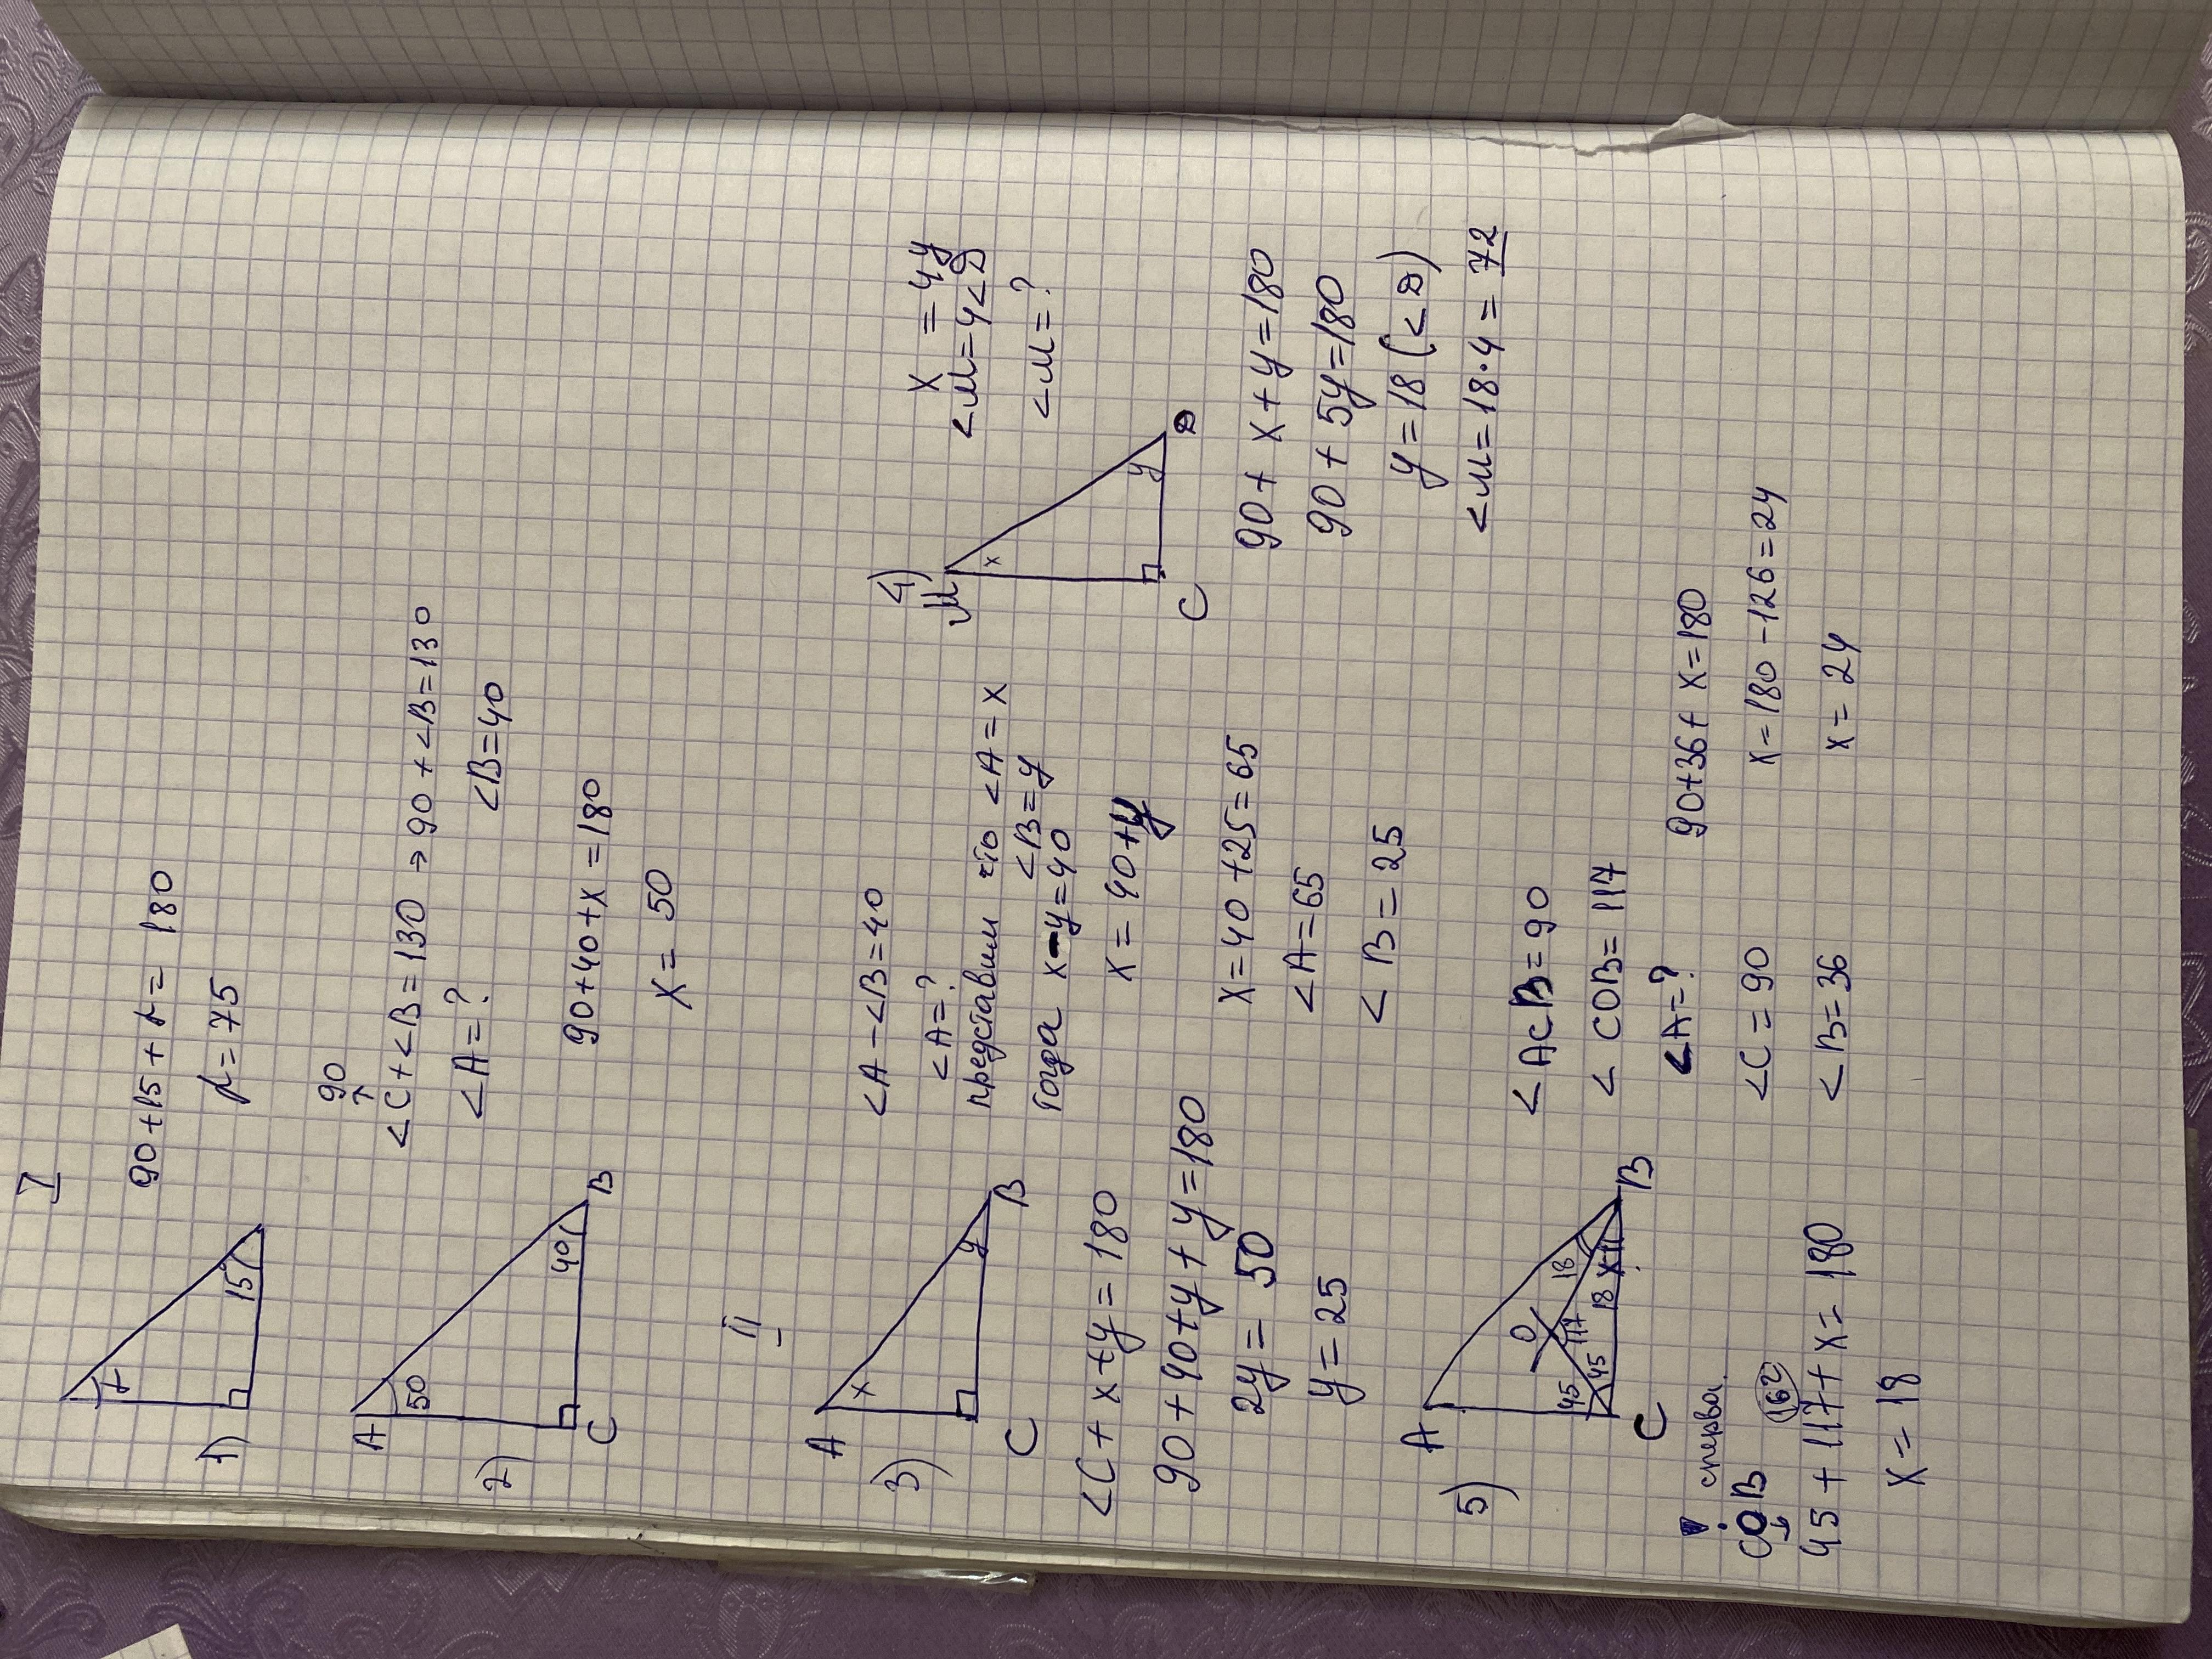 I
1)
t
15
90+15+t=180
t=75
2)
A
50
40
C
B
90
<C+<B=130→90+<B=130
<A=?
<B=40
90+40+x=180
x=50
II
3)
A
x
y
C
B
<A-<B=40
<A=?
представим что <A=x
<B=y
тогда x-y=40
x=40+y
<C+x+y=180
90+40+y+y=180
2y=50
y=25
x=40+25=65
<A=65
<B=25
4)
M
x
y
C
D
x=4y
<M=4<D
<M=?
90+x+y=180
90+5y=180
y=18(<D)
<M=18·4=72
5)
A
O
45
45
117
18
18
x
C
B
<ACB=90
<COB=117
<A=?
<C=90
<B=36
сперва
COB
162
45+117+x=180
x=18
90+36+x=180
x=180-126=24
x=24